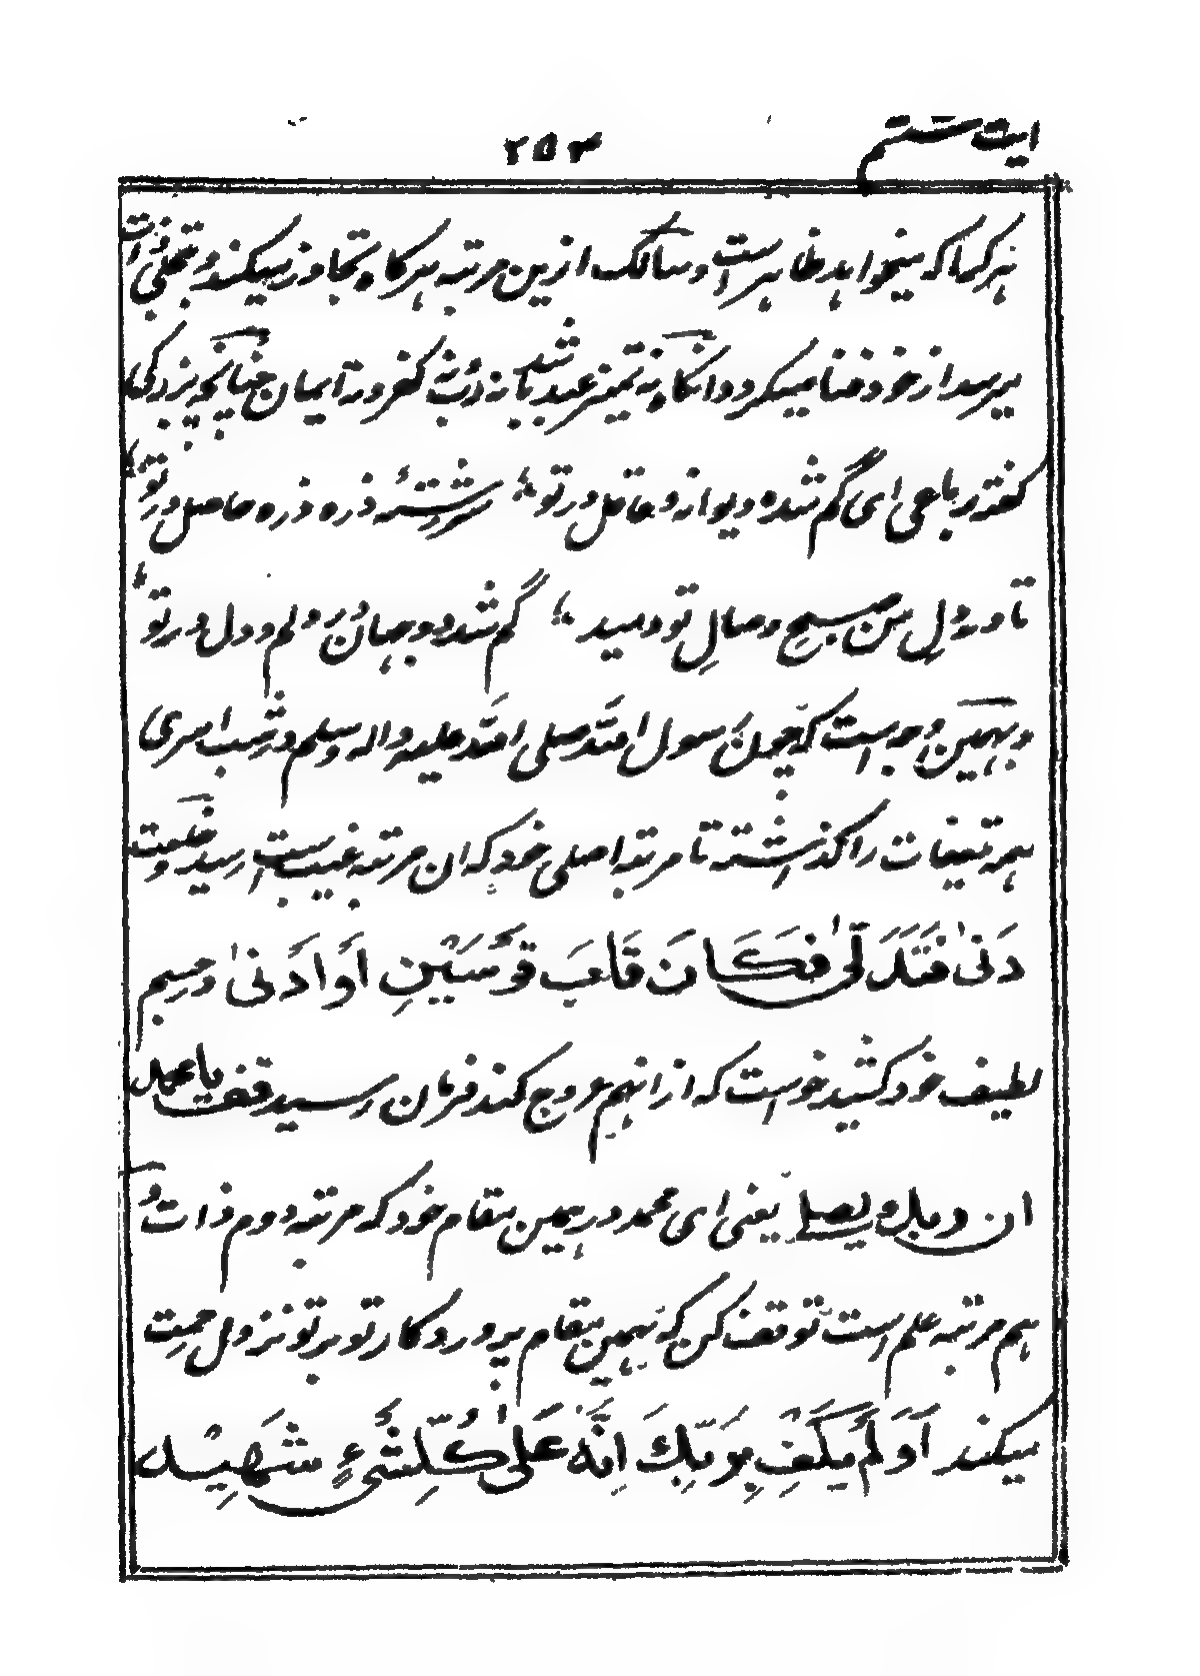 ایت ششم ۲۵۳
هر کجا که میخواهد ظاهر است و سالک ازین مرتبه هرگاه تجاوز میکند و بتجلی ذات
میرسد از خود فنا میگردد وانگاه نه تمیز عبد باشد نه رب نه کفر و نه ایمان چنانچه بزرگی
گفته رباعی ای گم شده دیوانه و عاقل در تو ؛ سررشتهٔ ذره ذره حاصل در تو ؛
تا در دل من صبح وصال تو دمید ؛ گم شد دو جهان در دلم و دل در تو ؛
و بهمین وجه است که چون رسول الله صلی الله علیه واله وسلم در شب اسری
همه تعینات را گذشته تا مرتبه اصلی خود که ان مرتبه غیب است رسید و حقیقت
دَنیٰ فَتَدَلّیٰ فَکَانَ قَابَ قَوْسَیْنِ اَوْ اَدْنیٰ و جسم
لطیف خود کشید خواست که از انهم عروج کند فرمان رسید قف یا محمد
ان ربك یصلے یعنی ای محمد در همین مقام خود که مرتبه دوم ذات و
هم مرتبه علم است توقف کن که بهمین مقام پروردگار تو بر تو نزول رحمت
میکند اَوَلَمْ یَکْفِ بِرَبِّكَ اِنَّهٗ عَلیٰ کُلِّ شَیْءٍ شَهِیْد